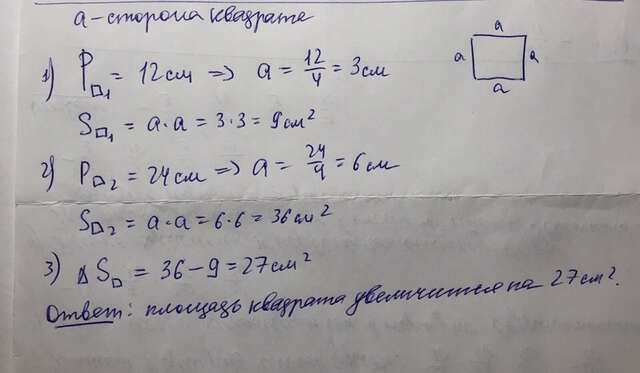 a - сторона квадрата
a
a a
a
1) P□₁ = 12 см => a = 12/4 = 3 см
S□₁ = a·a = 3·3 = 9 см²
2) P□₂ = 24 см => a = 24/4 = 6 см
S□₂ = a·a = 6·6 = 36 см²
3) ΔS□ = 36 - 9 = 27 см²
Ответ: площадь квадрата увеличится на 27 см².